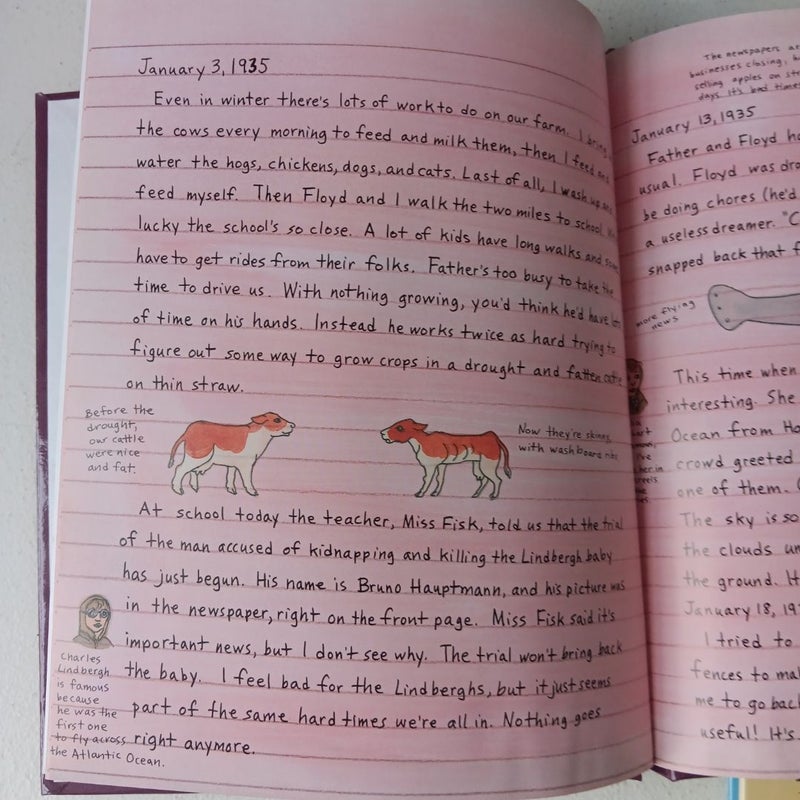 January 3, 1935
Even in winter there's lots of work to do on our farm. I bring
the cows every morning to feed and milk them, then I feed and
water the hogs, chickens, dogs, and cats. Last of all, I wash up and
feed myself. Then Floyd and I walk the two miles to school.
lucky the school's so close. A lot of kids have long walks and some
have to get rides from their folks. Father's too busy to take the
time to drive us. With nothing growing, you'd think he'd have lots
of time on his hands. Instead he works twice as hard trying to
figure out some way to grow crops in a drought and fatten cattle
on thin straw.
Before the
drought,
our cattle
were nice
and fat.
Now they're skinny
with washboard ribs
At school today the teacher, Miss Fisk, told us that the trial
of the man accused of kidnapping and killing the Lindbergh baby
has just begun. His name is Bruno Hauptmann, and his picture was
in the newspaper, right on the front page. Miss Fisk said it's
important news, but I don't see why. The trial won't bring back
the baby. I feel bad for the Lindberghs, but it just seems
part of the same hard times we're all in. Nothing goes
right anymore.
Charles
Lindbergh
is famous
because
he was the
first one
to fly across
the Atlantic Ocean.
The newspapers are
businesses closing,
selling apples on
days it's bad times
January 13, 1935
Father and Floyd
usual. Floyd was
be doing chores (he'd
a useless dreamer. "C
snapped back that
more flying
news
This time when
interesting. She
Ocean from
crowd greeted
one of them.
The sky is so
the clouds
the ground.
January 18,
I tried to
fences to
me to go back
useful! It's